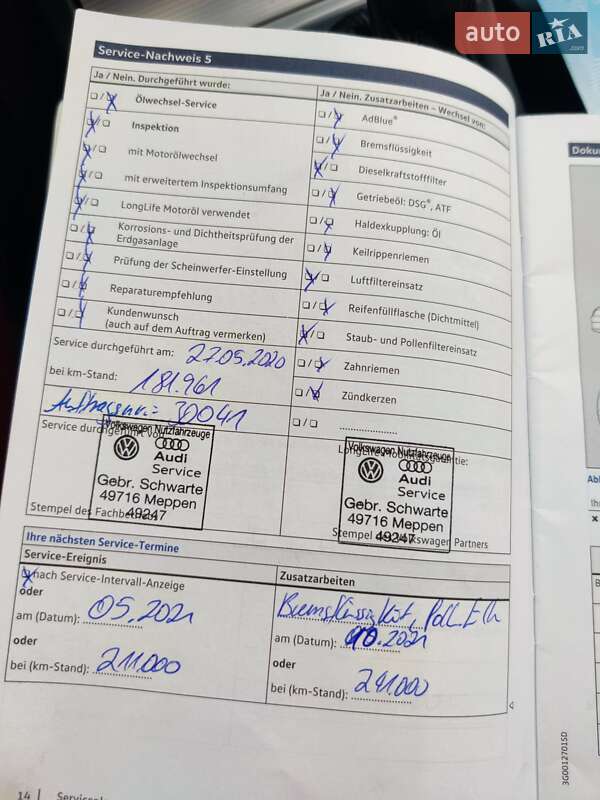 auto RIA .com
Service-Nachweis 5
Ja / Nein. Durchgeführt wurde:
Ölwechsel-Service
Inspektion
mit Motorölwechsel
mit erweitertem Inspektionsumfang
LongLife Motoröl verwendet
Korrosions- und Dichtheitsprüfung der
Erdgasanlage
Prüfung der Scheinwerfer-Einstellung
Reparaturempfehlung
Kundenwunsch
(auch auf dem Auftrag vermerken)
Service durchgeführt am: 27.05.2020
bei km-Stand: 181.961
Auftragsnr.: 30041
Service durchgeführt von:
Volkswagen Nutzfahrzeuge
Audi
Service
Gebr. Schwarte
49716 Meppen
49247
Stempel des Fachbetriebs
Ja / Nein. Zusatzarbeiten – Wechsel von:
AdBlue®
Bremsflüssigkeit
Dieselkraftstofffilter
Getriebeöl: DSG®, ATF
Haldexkupplung: Öl
Keilrippenriemen
Luftfiltereinsatz
Reifenfüllflasche (Dichtmittel)
Staub- und Pollenfiltereinsatz
Zahnriemen
Zündkerzen
LongLife Mobilitätsgarantie:
Volkswagen Nutzfahrzeuge
Audi
Service
Gebr. Schwarte
49716 Meppen
49247
Stempel des Volkswagen Partners
Ihre nächsten Service-Termine
Service-Ereignis
nach Service-Intervall-Anzeige
oder
am (Datum): 05.2021
oder
bei (km-Stand): 211.000
Zusatzarbeiten
Bremsflüssigkeit,
am (Datum): 10.2021
oder
bei (km-Stand): 241.000
14
3G0012701SD
Doku